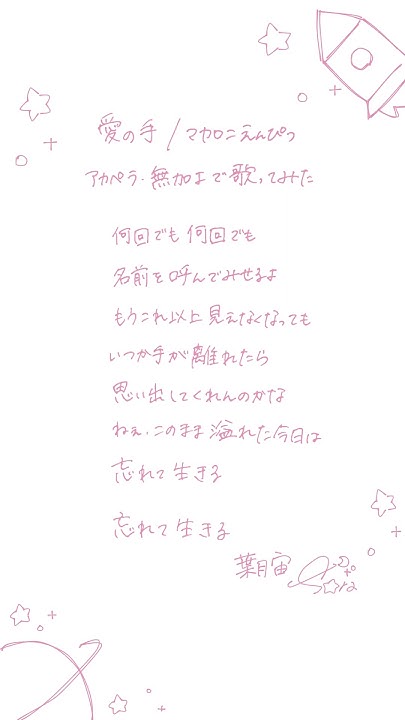 愛の手/マカロニえんぴつ
アカペラ・無加工で歌ってみた
何回でも何回でも
名前を呼んでみせるよ
もうこれ以上見えなくなっても
いつか手が離れたら
思い出してくれんのかな
ねぇ、このまま溢れた今日は
忘れて生きる
忘れて生きる
葉月宙